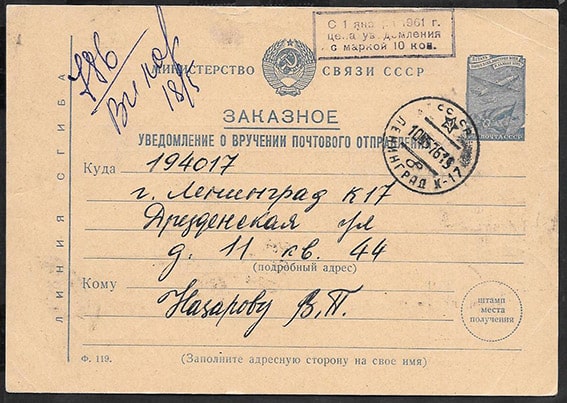 С 1 января 1961 г.
цена уведомления
с маркой 10 коп.
786
18/5
МИНИСТЕРСТВО СВЯЗИ СССР
ЗАКАЗНОЕ
УВЕДОМЛЕНИЕ О ВРУЧЕНИИ ПОЧТОВОГО ОТПРАВЛЕНИЯ
СССР
ЛЕНИНГРАД К-17
ПОЧТА СССР
Куда 194017
г. Ленинград К17
Дрезденская ул
д. 11 кв. 44
(подробный адрес)
Кому Назарову В.П.
штамп
места
получения
Ф. 119.
(Заполните адресную сторону на свое имя)
ЛИНИЯ СГИБА